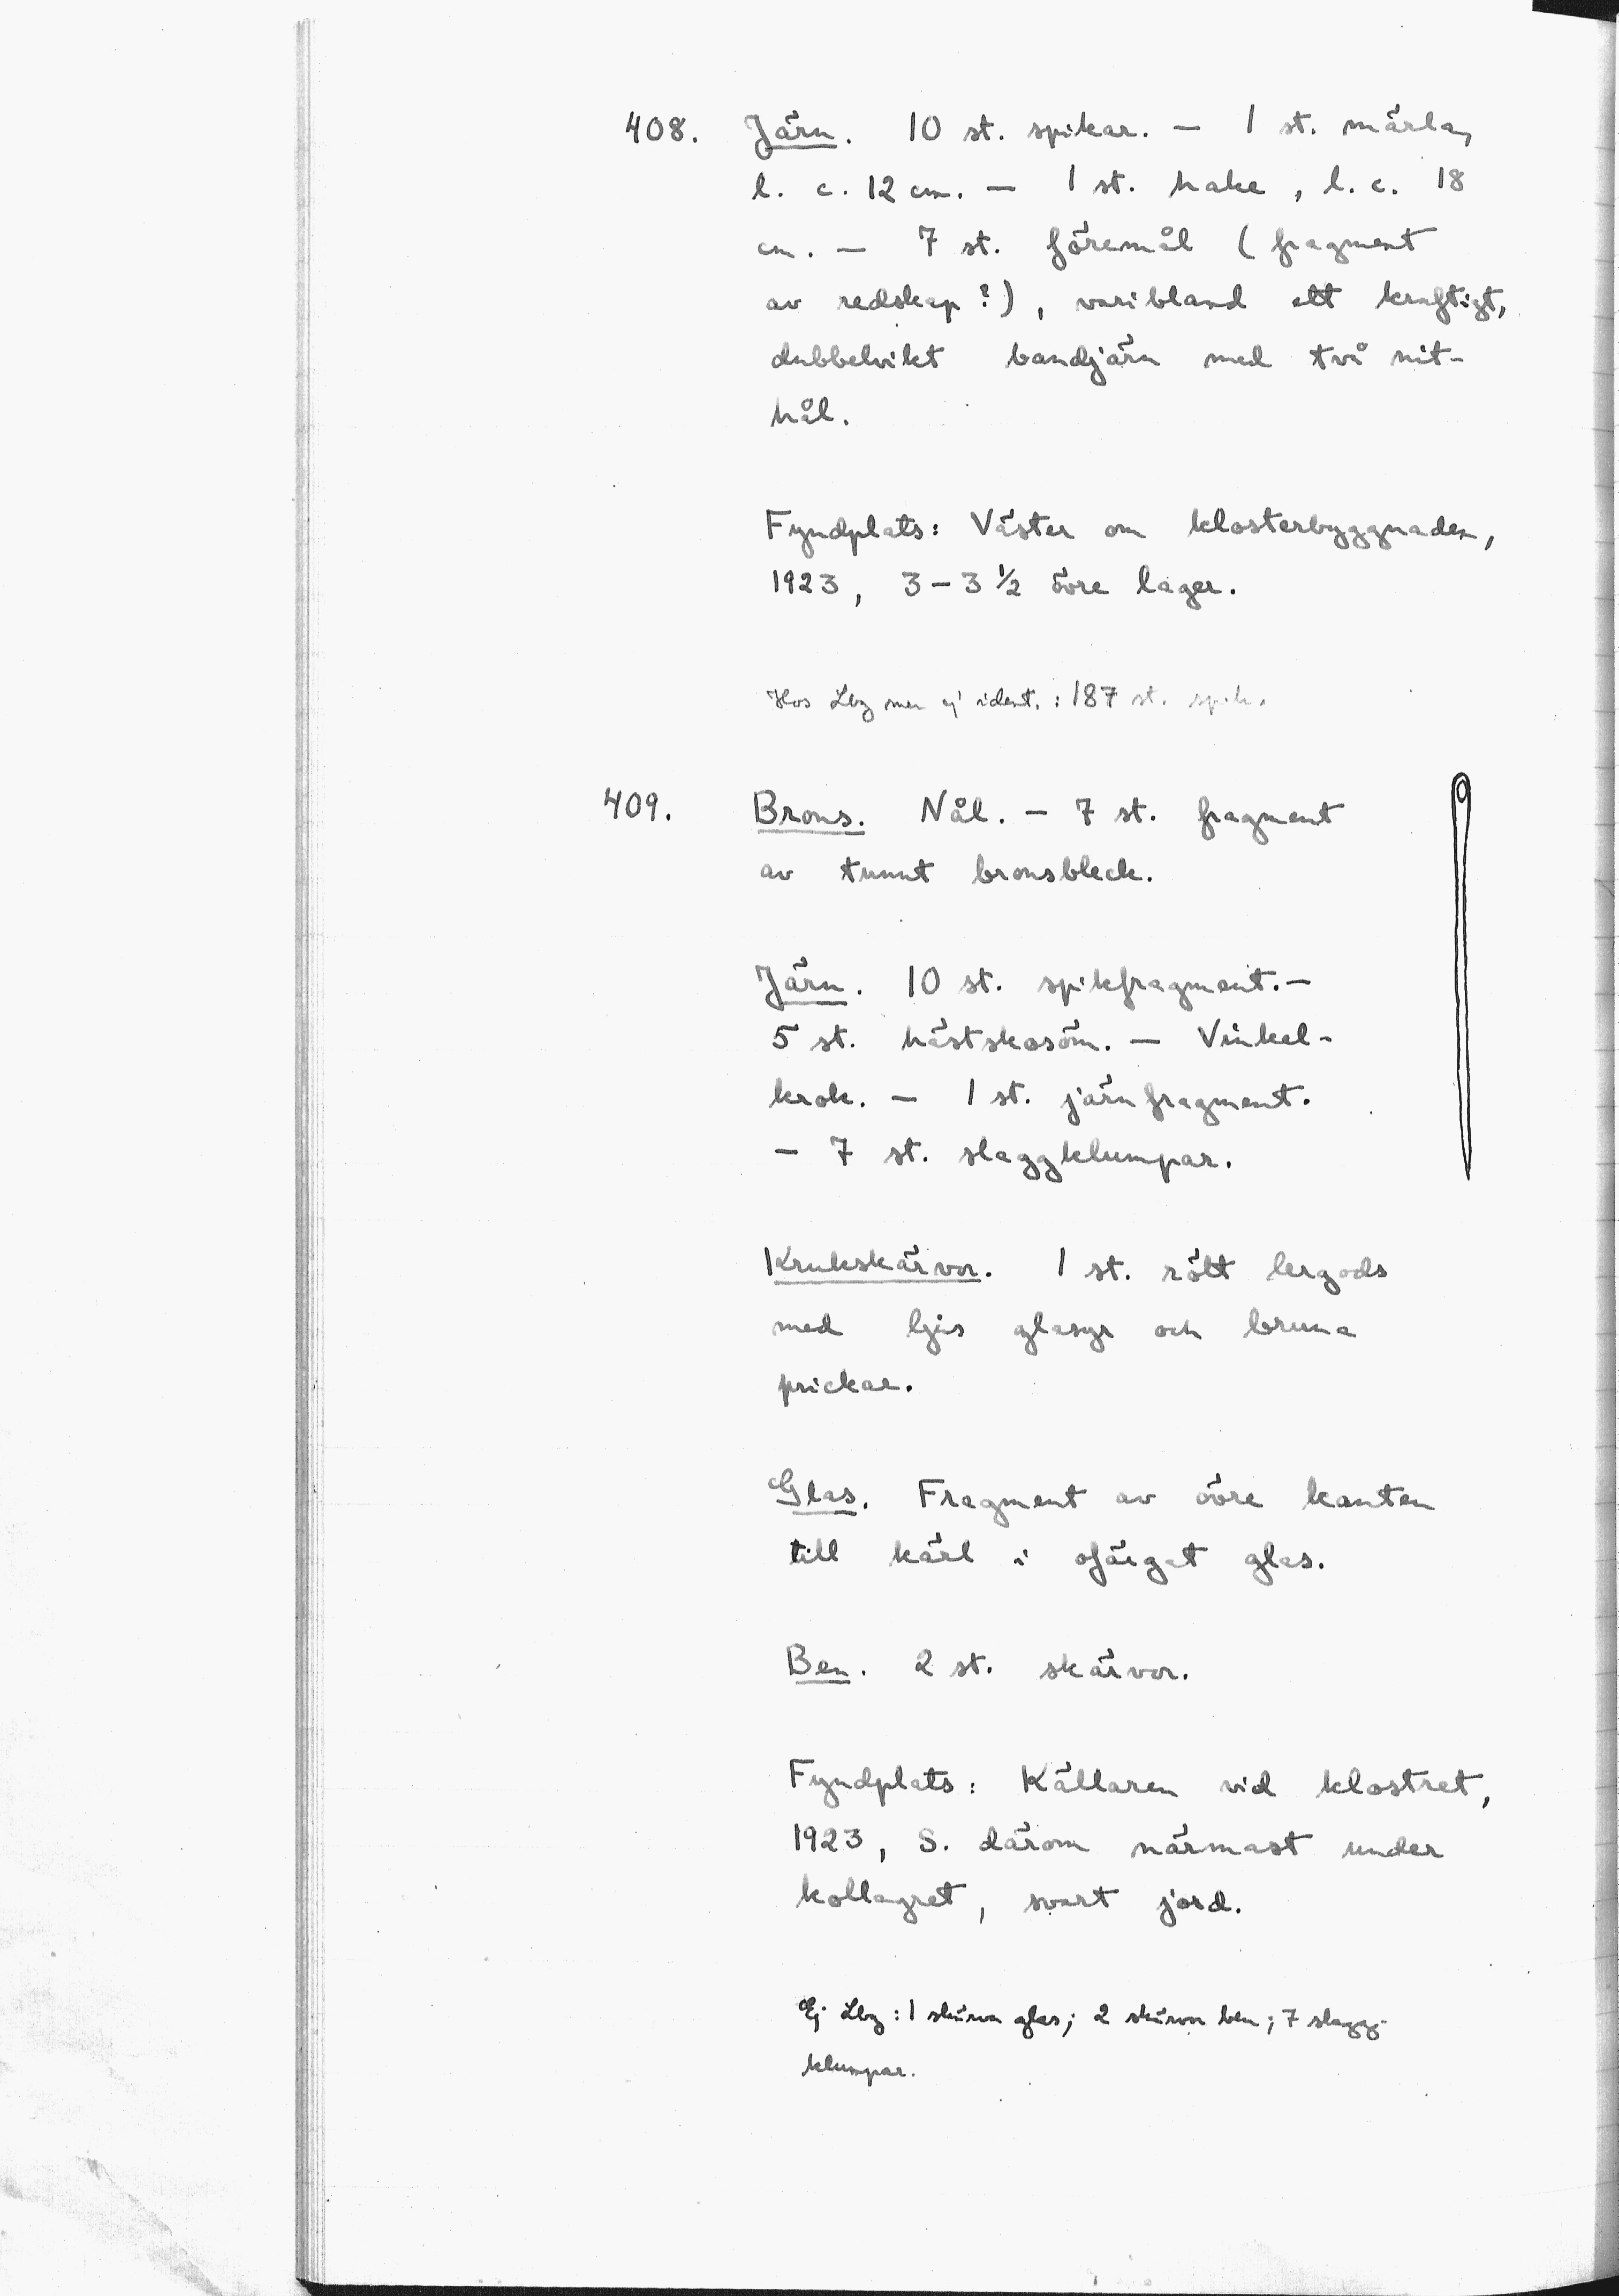 408. Järn. 10 st. spikar. — 1 st. märla,
l. c. 12 cm. — 1 st. hake, l. c. 18
cm. — 7 st. föremål (fragment
av redskap?), varibland ett kraftigt,
dubbelvikt bandjärn med två nit-
hål.
Fyndplats: Väster om klosterbyggnaden,
1923, 3 – 3 ½ övre lager.
Hos Lbg men ej ident. : 187 st. spik.
409. Brons. Nål. – 7 st. fragment
av tunnt bronsbleck.
Järn. 10 st. spikfragment. –
5 st. hästskosöm. — Vinkel-
krok. — 1 st. järnfragment.
– 7 st. slaggklumpar.
Krukskärvor. 1 st. rött lergods
med ljus glasyr och bruna
prickar.
Glas. Fragment av övre kanten
till kärl i ofärgat glas.
Ben. 2 st. skärvor.
Fyndplats: Källaren vid klostret,
1923, S. därom närmast under
kollagret, svart jord.
Ej Lbg : 1 skärva glas; 2 skärvor ben; 7 slagg-
klumpar.